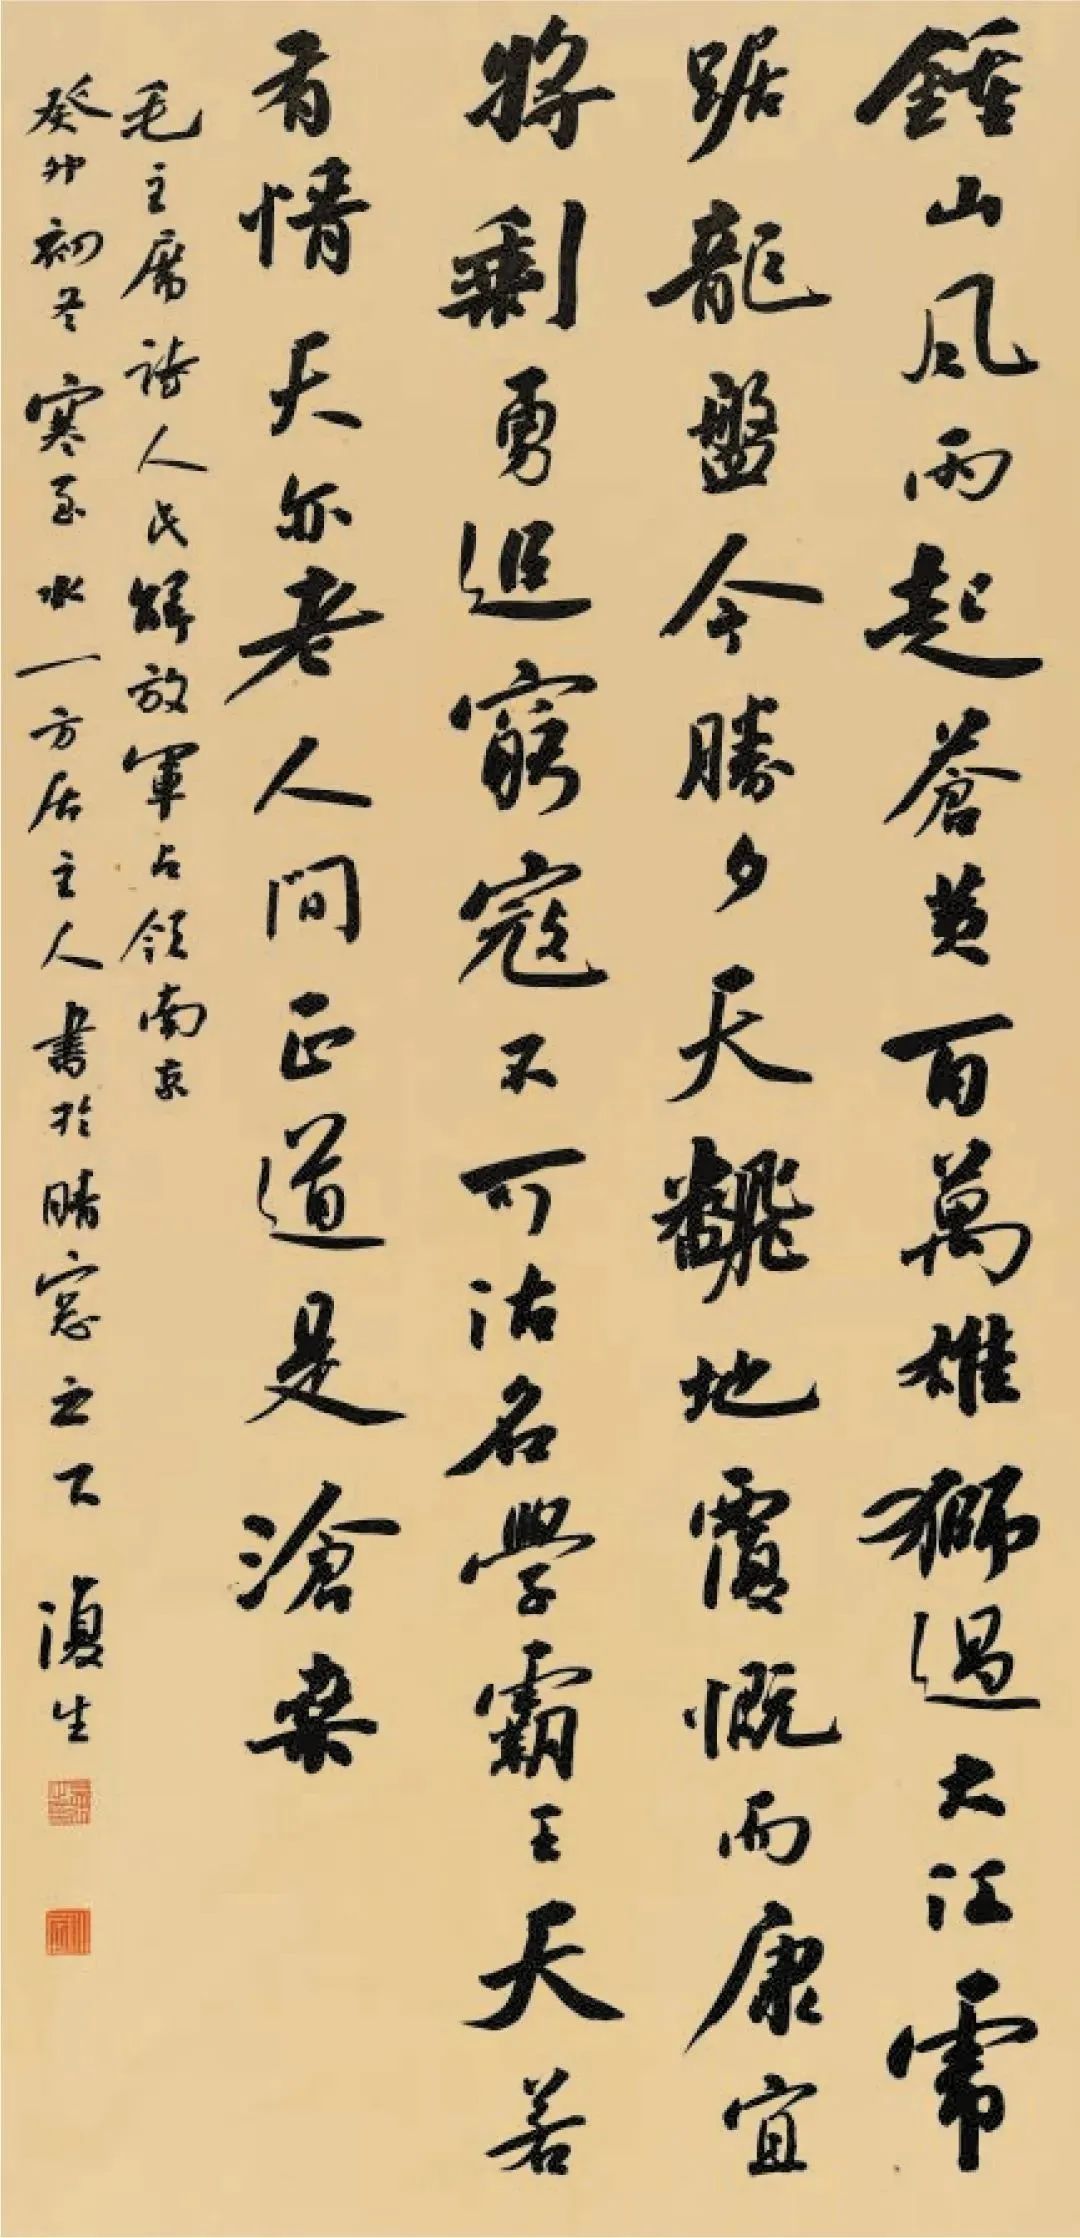 鍾山風雨起蒼黃百萬雄獅過大江虎
踞龍盤今勝夕天飜地覆慨而康宜
將剩勇追窮寇不可沽名學霸王天若
有情天亦老人間正道是滄桑
毛主席詩人民解放軍占領南京
癸卯初冬寒至水一方居主人書於晴窓之下 復生